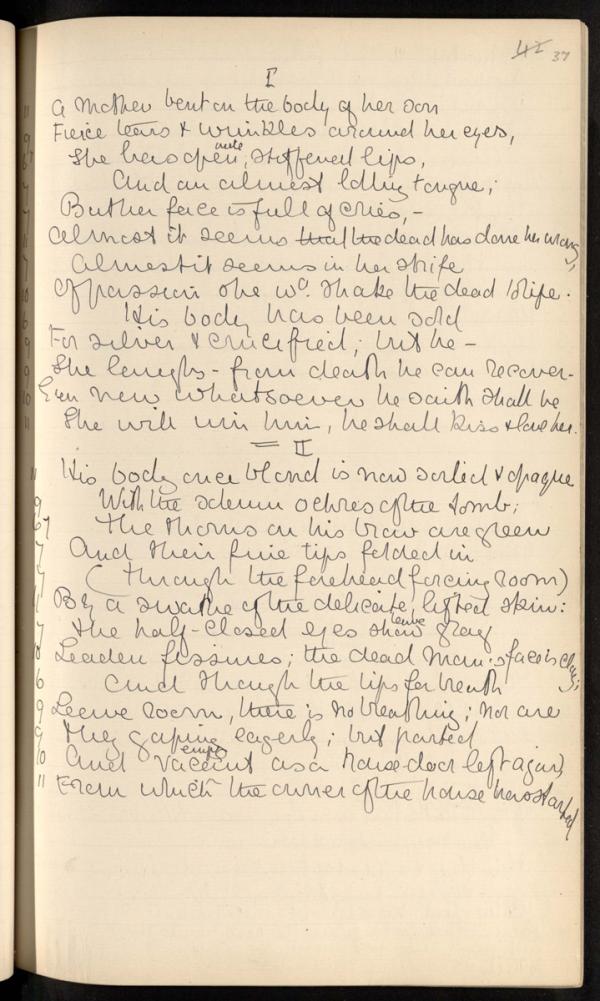 41 37
I
A Mother bent on the body of her son
Fierce tears & wrinkles around her eyes,
She has open, stiffened lips,
And an almost lolling tongue;
But her face is full of cries, –
Almost it seems that the dead has done her wrong,
Almost it seems in her strife
Of passion she wd. shake the dead to life.
His body has been sold
For silver & crucified; but he –
She laughs – from death he can recover –
Even now whatsoever he saith shall be
She will win him, he shall kiss & love her.
= II
11 His body once blond is now soiled & opaque
9 With the solemn ochres of the tomb;
67 The thorns on his brow are green
7 And their fine tips folded in
7 (Through the forehead forcing room)
By a swathe of the delicate, lifted skin:
7 The half-closed eyes show gray
leave
Leaden fissures; the dead man's face is clay;
6 And though the lips for breath
9 Leave room, there is no breathing; nor are
9 They gaping eagerly; but parted
empty
10 And vacant as a house-door left ajar,
11 From which the owner of the house has started